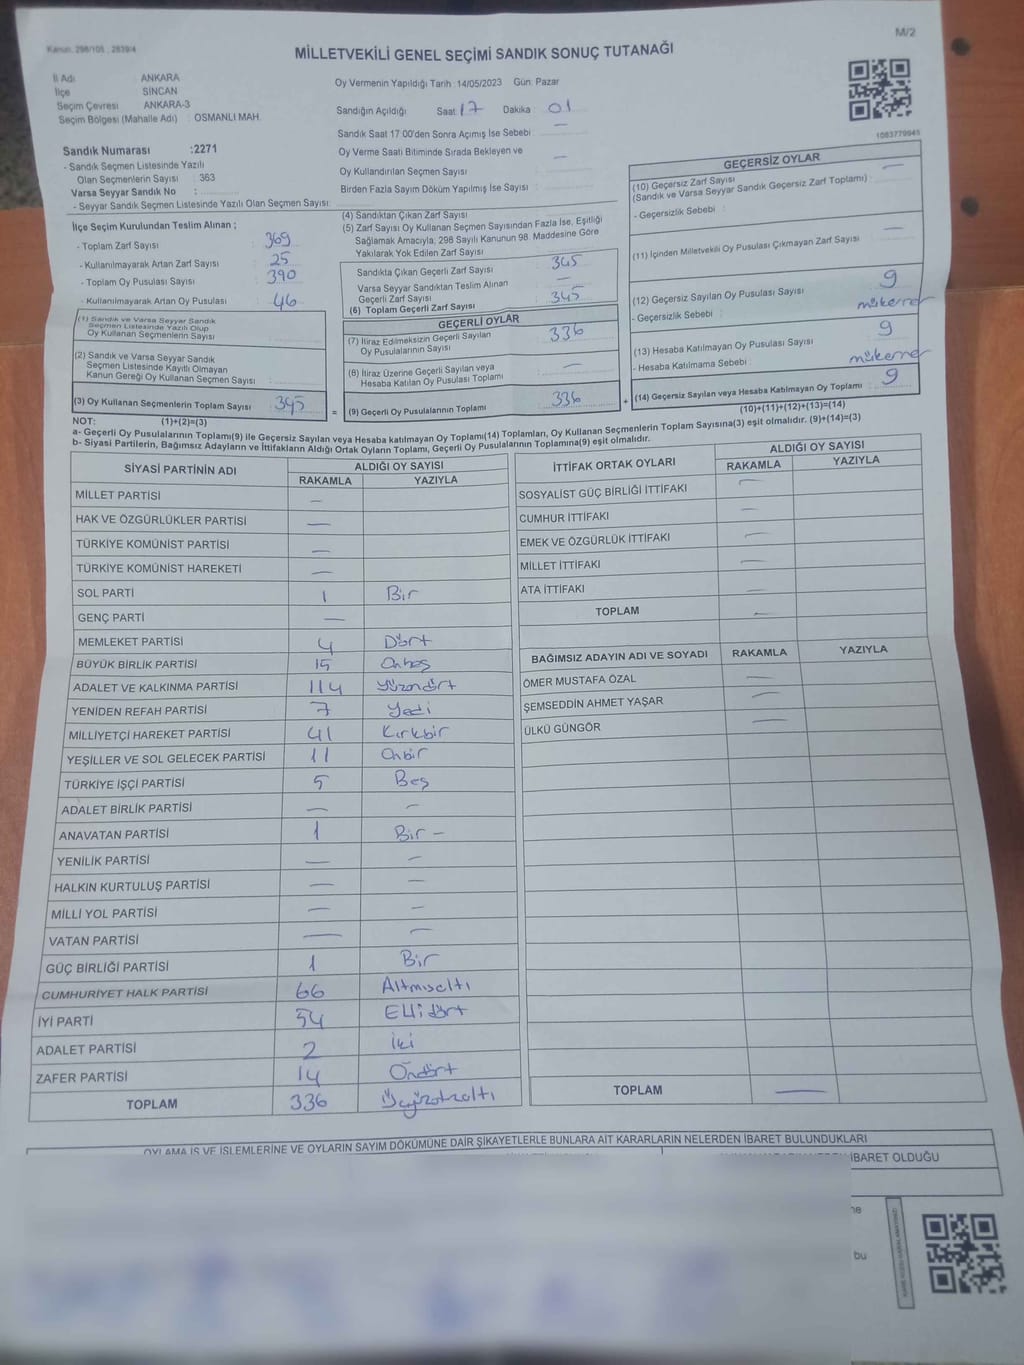 Kanun: 298/105 , 2839/4
M/2
MİLLETVEKİLİ GENEL SEÇİMİ SANDIK SONUÇ TUTANAĞI
İl Adı : ANKARA
İlçe SİNCAN
Seçim Çevresi ANKARA-3
Seçim Bölgesi (Mahalle Adı) : OSMANLI MAH.
Sandık Numarası :2271
- Sandık Seçmen Listesinde Yazılı
Olan Seçmenlerin Sayısı : 363
Varsa Seyyar Sandık No :
- Seyyar Sandık Seçmen Listesinde Yazılı Olan Seçmen Sayısı:
Oy Vermenin Yapıldığı Tarih :14/05/2023 Gün: Pazar
Sandığın Açıldığı Saat: 17 Dakika : 01
Sandık Saat 17:00'den Sonra Açımış İse Sebebi : —
Oy Verme Saati Bitiminde Sırada Bekleyen ve
Oy Kullandırılan Seçmen Sayısı : —
Birden Fazla Sayım Döküm Yapılmış İse Sayısı :
1083779945
İlçe Seçim Kurulundan Teslim Alınan ;
- Toplam Zarf Sayısı : 369
- Kullanılmayarak Artan Zarf Sayısı : 25
- Toplam Oy Pusulası Sayısı : 390
- Kullanılmayarak Artan Oy Pusulası : 46
(1) Sandık ve Varsa Seyyar Sandık
Seçmen Listesinde Yazılı Olup
Oy Kullanan Seçmenlerin Sayısı :
(2) Sandık ve Varsa Seyyar Sandık
Seçmen Listesinde Kayıtlı Olmayan
Kanun Gereği Oy Kullanan Seçmen Sayısı :
(3) Oy Kullanan Seçmenlerin Toplam Sayısı : 345
(4) Sandıktan Çıkan Zarf Sayısı
(5) Zarf Sayısı Oy Kullanan Seçmen Sayısından Fazla İse, Eşitliği
Sağlamak Amacıyla; 298 Sayılı Kanunun 98. Maddesine Göre
Yakılarak Yok Edilen Zarf Sayısı
Sandıkta Çıkan Geçerli Zarf Sayısı : 345
Varsa Seyyar Sandıktan Teslim Alınan
Geçerli Zarf Sayısı : —
(6) Toplam Geçerli Zarf Sayısı : 345
GEÇERLİ OYLAR
(7) İtiraz Edilmeksizin Geçerli Sayılan
Oy Pusulalarının Sayısı : 336
(8) İtiraz Üzerine Geçerli Sayılan veya
Hesaba Katılan Oy Pusulası Toplamı : —
= (9) Geçerli Oy Pusulalarının Toplamı : 336 +
GEÇERSİZ OYLAR
(10) Geçersiz Zarf Sayısı
(Sandık ve Varsa Seyyar Sandık Geçersiz Zarf Toplamı) : —
- Geçersizlik Sebebi :
(11) İçinden Milletvekili Oy Pusulası Çıkmayan Zarf Sayısı : —
(12) Geçersiz Sayılan Oy Pusulası Sayısı : 9
- Geçersizlik Sebebi : mükerrer
(13) Hesaba Katılmayan Oy Pusulası Sayısı : 9
- Hesaba Katılmama Sebebi : mükerrer
(14) Geçersiz Sayılan veya Hesaba Katılmayan Oy Toplamı : 9
NOT: (1)+(2)=(3)
(10)+(11)+(12)+(13)=(14)
a- Geçerli Oy Pusulalarının Toplamı(9) ile Geçersiz Sayılan veya Hesaba katılmayan Oy Toplamı(14) Toplamları, Oy Kullanan Seçmenlerin Toplam Sayısına(3) eşit olmalıdır. (9)+(14)=(3)
b- Siyasi Partilerin, Bağımsız Adayların ve İttifakların Aldığı Ortak Oyların Toplamı, Geçerli Oy Pusulalarının Toplamına(9) eşit olmalıdır.
SİYASİ PARTİNİN ADI ALDIĞI OY SAYISI
RAKAMLA YAZIYLA
MİLLET PARTİSİ —
HAK VE ÖZGÜRLÜKLER PARTİSİ —
TÜRKİYE KOMÜNİST PARTİSİ —
TÜRKİYE KOMÜNİST HAREKETİ —
SOL PARTİ 1 Bir
GENÇ PARTİ —
MEMLEKET PARTİSİ 4 Dört
BÜYÜK BİRLİK PARTİSİ 15 Onbeş
ADALET VE KALKINMA PARTİSİ 114 Yüzondört
YENİDEN REFAH PARTİSİ 7 Yedi
MİLLİYETÇİ HAREKET PARTİSİ 41 Kırkbir
YEŞİLLER VE SOL GELECEK PARTİSİ 11 Onbir
TÜRKİYE İŞÇİ PARTİSİ 5 Beş
ADALET BİRLİK PARTİSİ — —
ANAVATAN PARTİSİ 1 Bir -
YENİLİK PARTİSİ — —
HALKIN KURTULUŞ PARTİSİ — —
MİLLİ YOL PARTİSİ — —
VATAN PARTİSİ — —
GÜÇ BİRLİĞİ PARTİSİ 1 Bir
CUMHURİYET HALK PARTİSİ 66 Altmışaltı
İYİ PARTİ 54 Ellidört
ADALET PARTİSİ 2 İki
ZAFER PARTİSİ 14 Ondört
TOPLAM 336 Üçyüzotuzaltı
İTTİFAK ORTAK OYLARI ALDIĞI OY SAYISI
RAKAMLA YAZIYLA
SOSYALİST GÜÇ BİRLİĞİ İTTİFAKI —
CUMHUR İTTİFAKI —
EMEK VE ÖZGÜRLÜK İTTİFAKI —
MİLLET İTTİFAKI —
ATA İTTİFAKI —
TOPLAM —
BAĞIMSIZ ADAYIN ADI VE SOYADI RAKAMLA YAZIYLA
ÖMER MUSTAFA ÖZAL —
ŞEMSEDDİN AHMET YAŞAR —
ÜLKÜ GÜNGÖR —
TOPLAM —
OYLAMA İŞ VE İŞLEMLERİNE VE OYLARIN SAYIM DÖKÜMÜNE DAİR ŞİKAYETLERLE BUNLARA AİT KARARLARIN NELERDEN İBARET BULUNDUKLARI
İBARET OLDUĞU
ne
bu